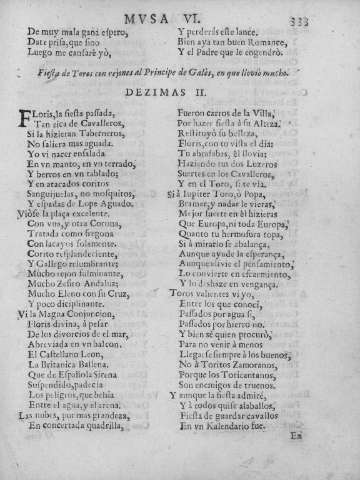 MVSA VI.
333
De muy mala gana espero,
Date prisa, que sino
Luego me cansarè yò,
Y perderàs este lance.
Bien aya tan buen Romance,
Y el Padre que le engendrò.
Fiesta de Toros con rejones al Principe de Gales, en que llovió mucho.
DEZIMAS II.
FLoris, la fiesta passada,
Tan rica de Cavalleros,
Si la hizieran Taberneros,
No saliera mas aguada.
Yo vi nacer ensalada
En vn manto, en vn terrado,
Y berros en vn tablado;
Y en atacados coritos
Sanguijuelas, no mosquitos,
Y espadas de Lope Aguado.
Viòse la plaça excelente,
Con vna, y otra Corona,
Tratada como fregona
Con lacayos solamente.
Corito resplandeciente,
Y Gallego relumbrante;
Mucho rejon fulminante,
Mucho Zefiro Andaluz;
Mucho Eleno con su Cruz,
Y poco diciplinante.
Vi la Magna Conjuncion,
Floris divina, à pesar
De los divorcios de el mar,
Abreviada en vn balcon.
El Castellano Leon,
La Britanica Ballena.
Que de Española Sirena
Suspendido, padecia
Los peligros, que bebia
Entre el agua, y el arena.
Las nubes, por mas grandeza,
En concertada quadrilla,
Fueron carros de la Villa,
Por hazer fiesta à su Alteza.
Restituyó su belleza,
Floris, con tu vista el dia:
Tu abrasabas, èl llovia;
Haziendo tus dos Luzeros
Suertes en los Cavalleros,
Y en el Toro, si te vìa.
Si à Iupiter Toro, ò Popa,
Bramar, y nadar le vieras,
Mejor suerte en èl hizieras
Que Europa, ni toda Europa,
Quanto tu hermosura topa,
Si à mirarlo se abalança,
Aunque ayude la esperança,
Aunque alivie el pensamiento,
Lo convierte en escarmiento,
Y lo deshaze en vengança.
Toros valientes vi yo,
Entre los que conocì,
Passados por agua si,
Passados por hierro no.
Y bien sè quien procurò,
Para no venir à menos
Llegarse siempre à los buenos,
No à Toritos Zamoranos,
Porque los Toricantanos,
Son enemigos de truenos.
Y aunque la fiesta admirè,
Y à todos quise alaballos,
Fiesta de guardar cavallos
En vn Kalendario fue.
En